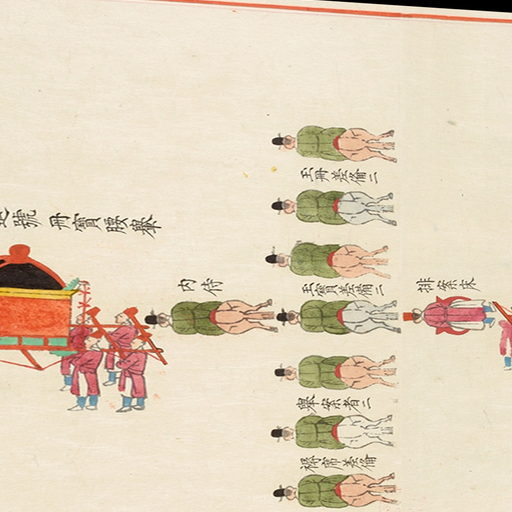 號冊寶腰轝
內侍
玉冊差備二
玉寶差備二
轝案者二
褥席差備
排案床